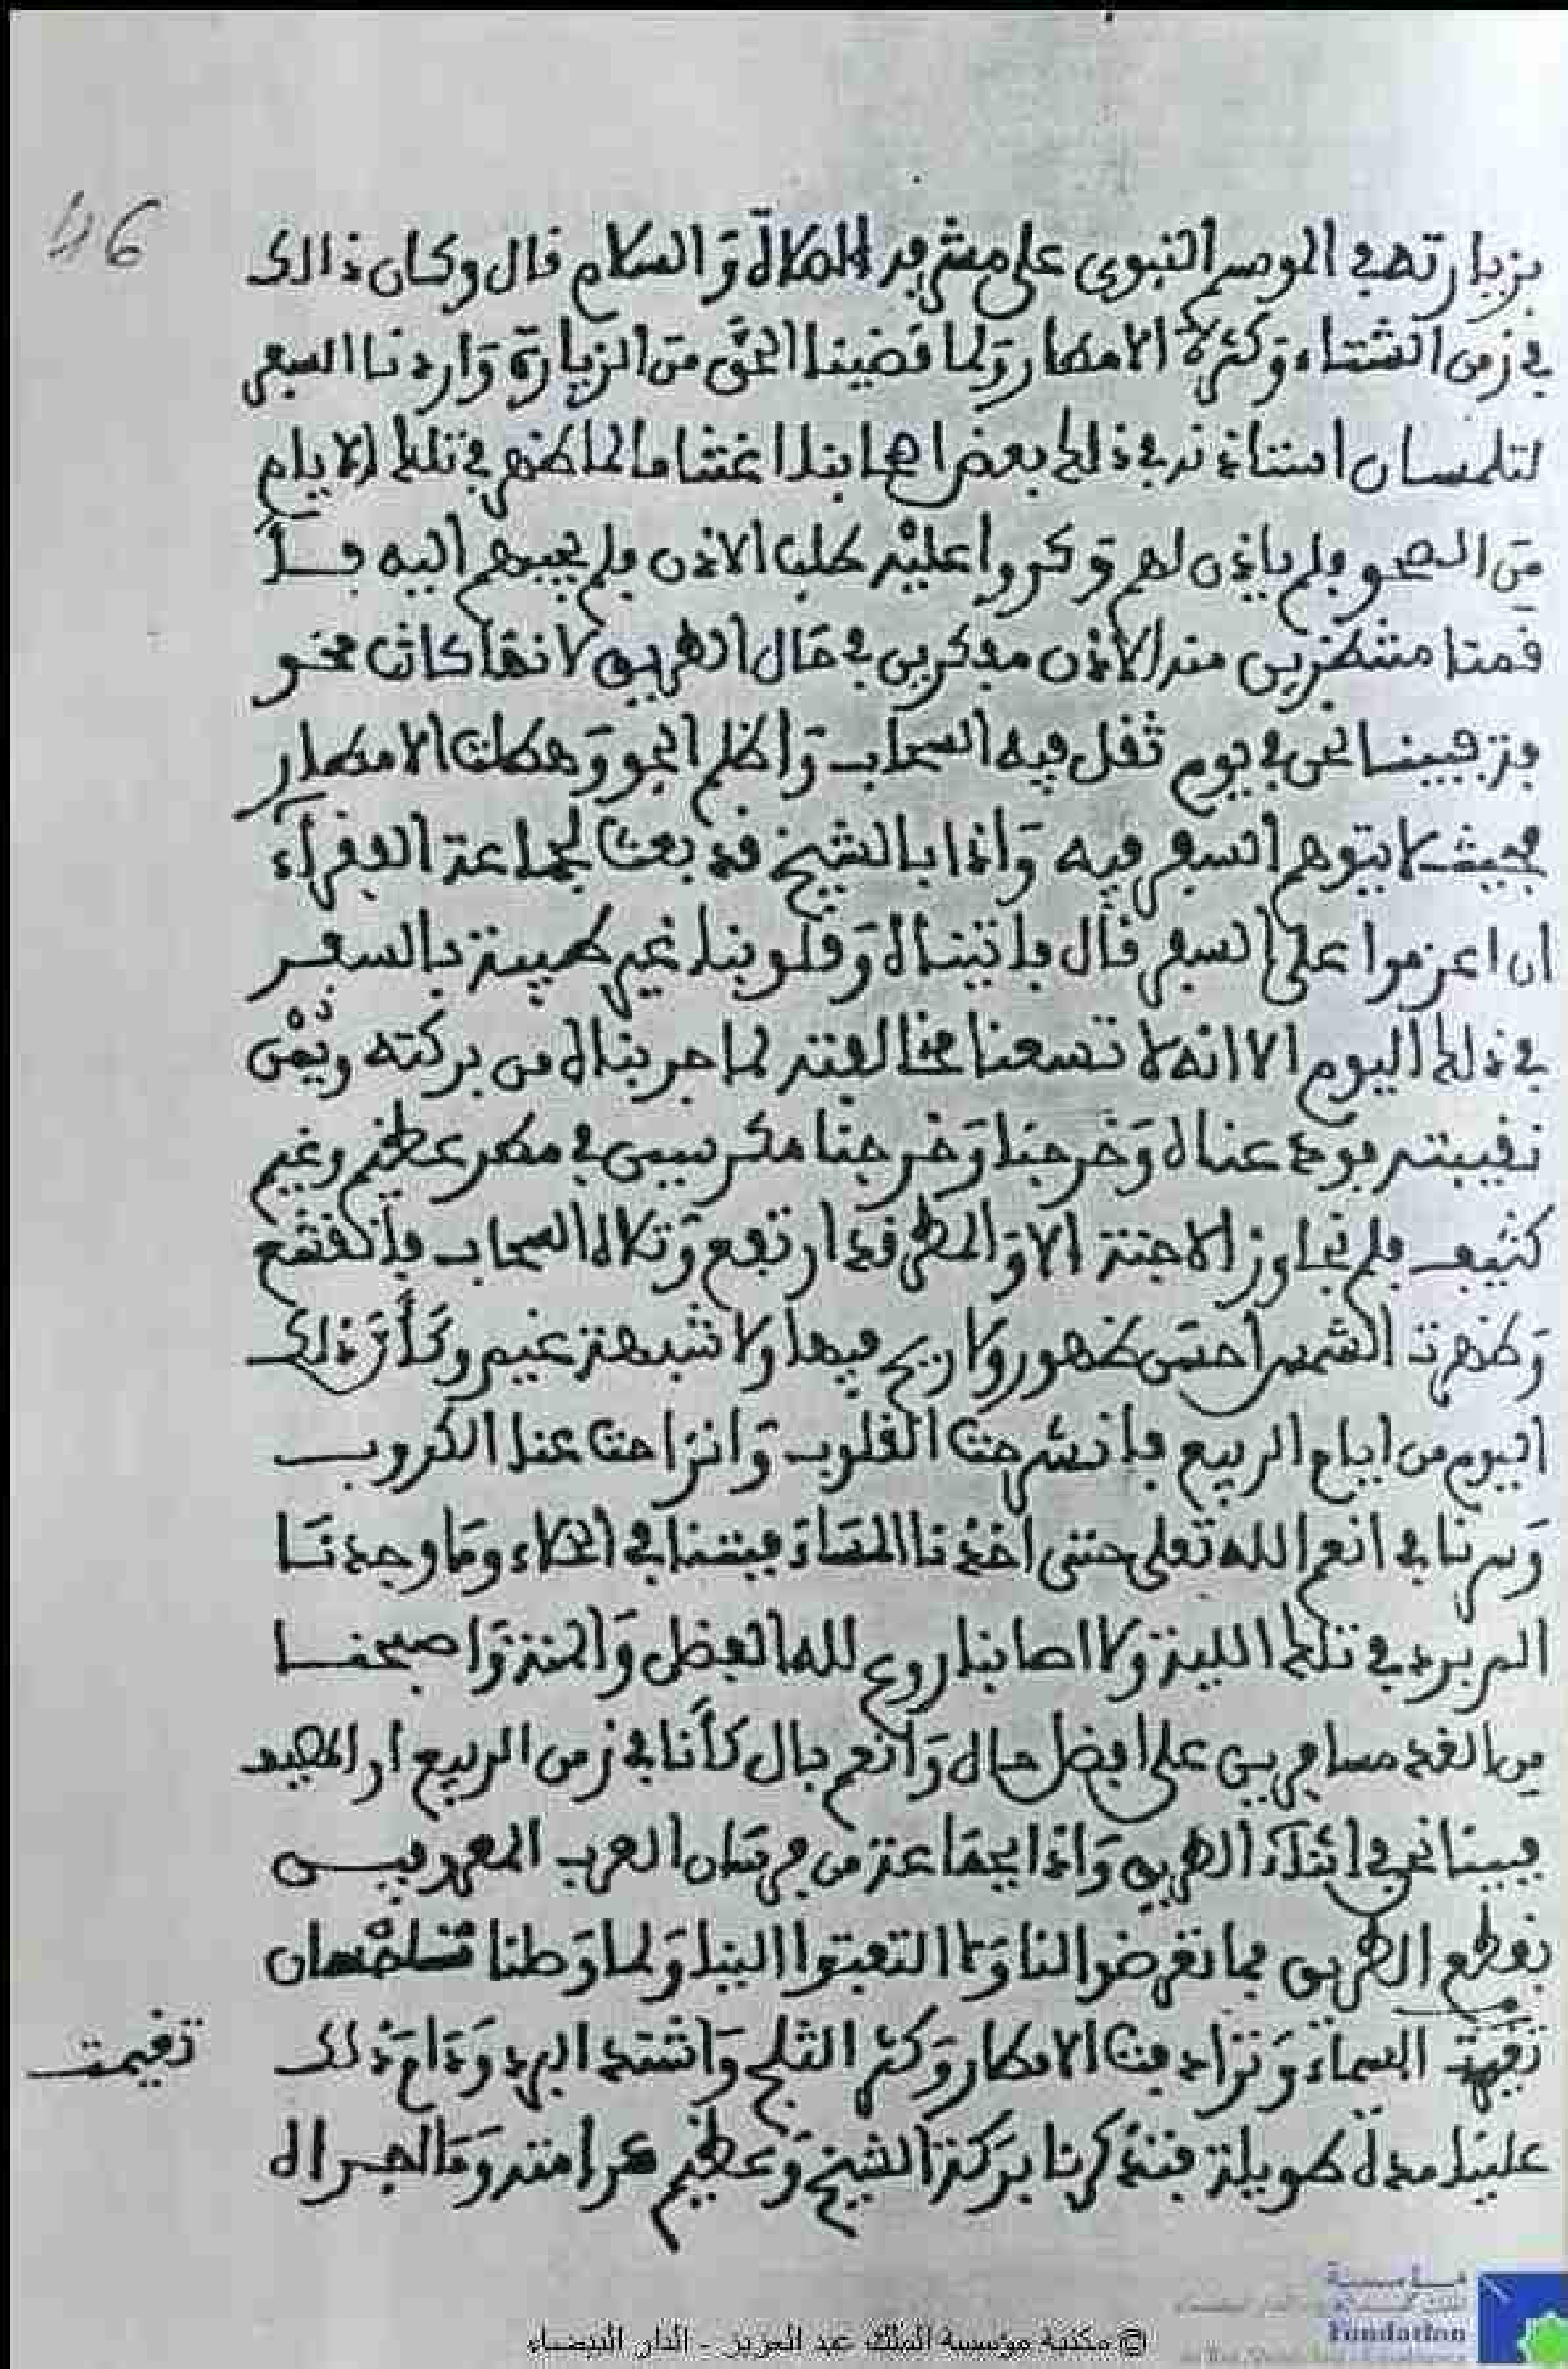 46
بزيارته في الموسم النبوي على مشرفه الصلاة والسلام قال وكان ذالك
في زمن الشتاء وكثرة الامطار ولما قضينا الحق من الزيارة واردنا السفر
لتلمسان استاذنه في ذلك بعض اصحابنا اغتناما لما ظهر في تلك الايام
من الصحو ولم ياذن لهم وكرروا عليه طلب الاذن ولم يجبهم اليه
منتظرين منه الاذن مفكرين في حال الطريق لانها كانت مخو
فة فبينما نحن في يوم ثقل فيه السحاب واظلم الجو وهطلت الامطار
بحيث لا يتوهم السفر فيه واذا بالشيخ قد بعث لجماعة الفقراء
ان اعزموا على السفر قال فاتيناه وقلوبنا غير طيبة بالسفر
في ذلك اليوم الا انه لا تسعنا مخالفته لما جربناه من بركته ويمن
نقيبته فودعناه وخرجنا وخرجنا مكرسين في مطر عظيم وغيم
كثيف فلم نجاوز الاجنة الا والمطر قد ارتفع وتلاه السحاب فانقشع
وظهرت الشمس احسن ظهور ولا ريح فيها ولا شبهة غيم وكأن ذلك
اليوم من ايام الربيع فانشرحت القلوب وانزاحت عنا الكروب
وسرنا في انعم الله تعلى حتى اخذنا المساء فبتنا في الخلاء وما وجدنا
الم برد في تلك الليلة ولا اصابنا روع لله الفضل والمنة واصبحنا
من الغد مسافرين على افضل حال وانعم بال كأنا في زمن الربيع او الصيف
فبينا نحن في اثناء الطريق واذا بجماعة من فرسان العرب المعروفين
بقطع الطريق فما تعرضوا لنا ولا التفتوا الينا ولما وصلنا تلمسان
تغيمت السماء وترادفت الامطار وكثر الثلج واشتد البرد ودام ذلك
تغيمت
علينا مدة طويلة فتذكرنا بركة الشيخ وعظيم كرامته وما اجراه
© مكتبة مؤسسة الملك عبد العزيز - الدار البيضاء
مؤسسة
Fundation